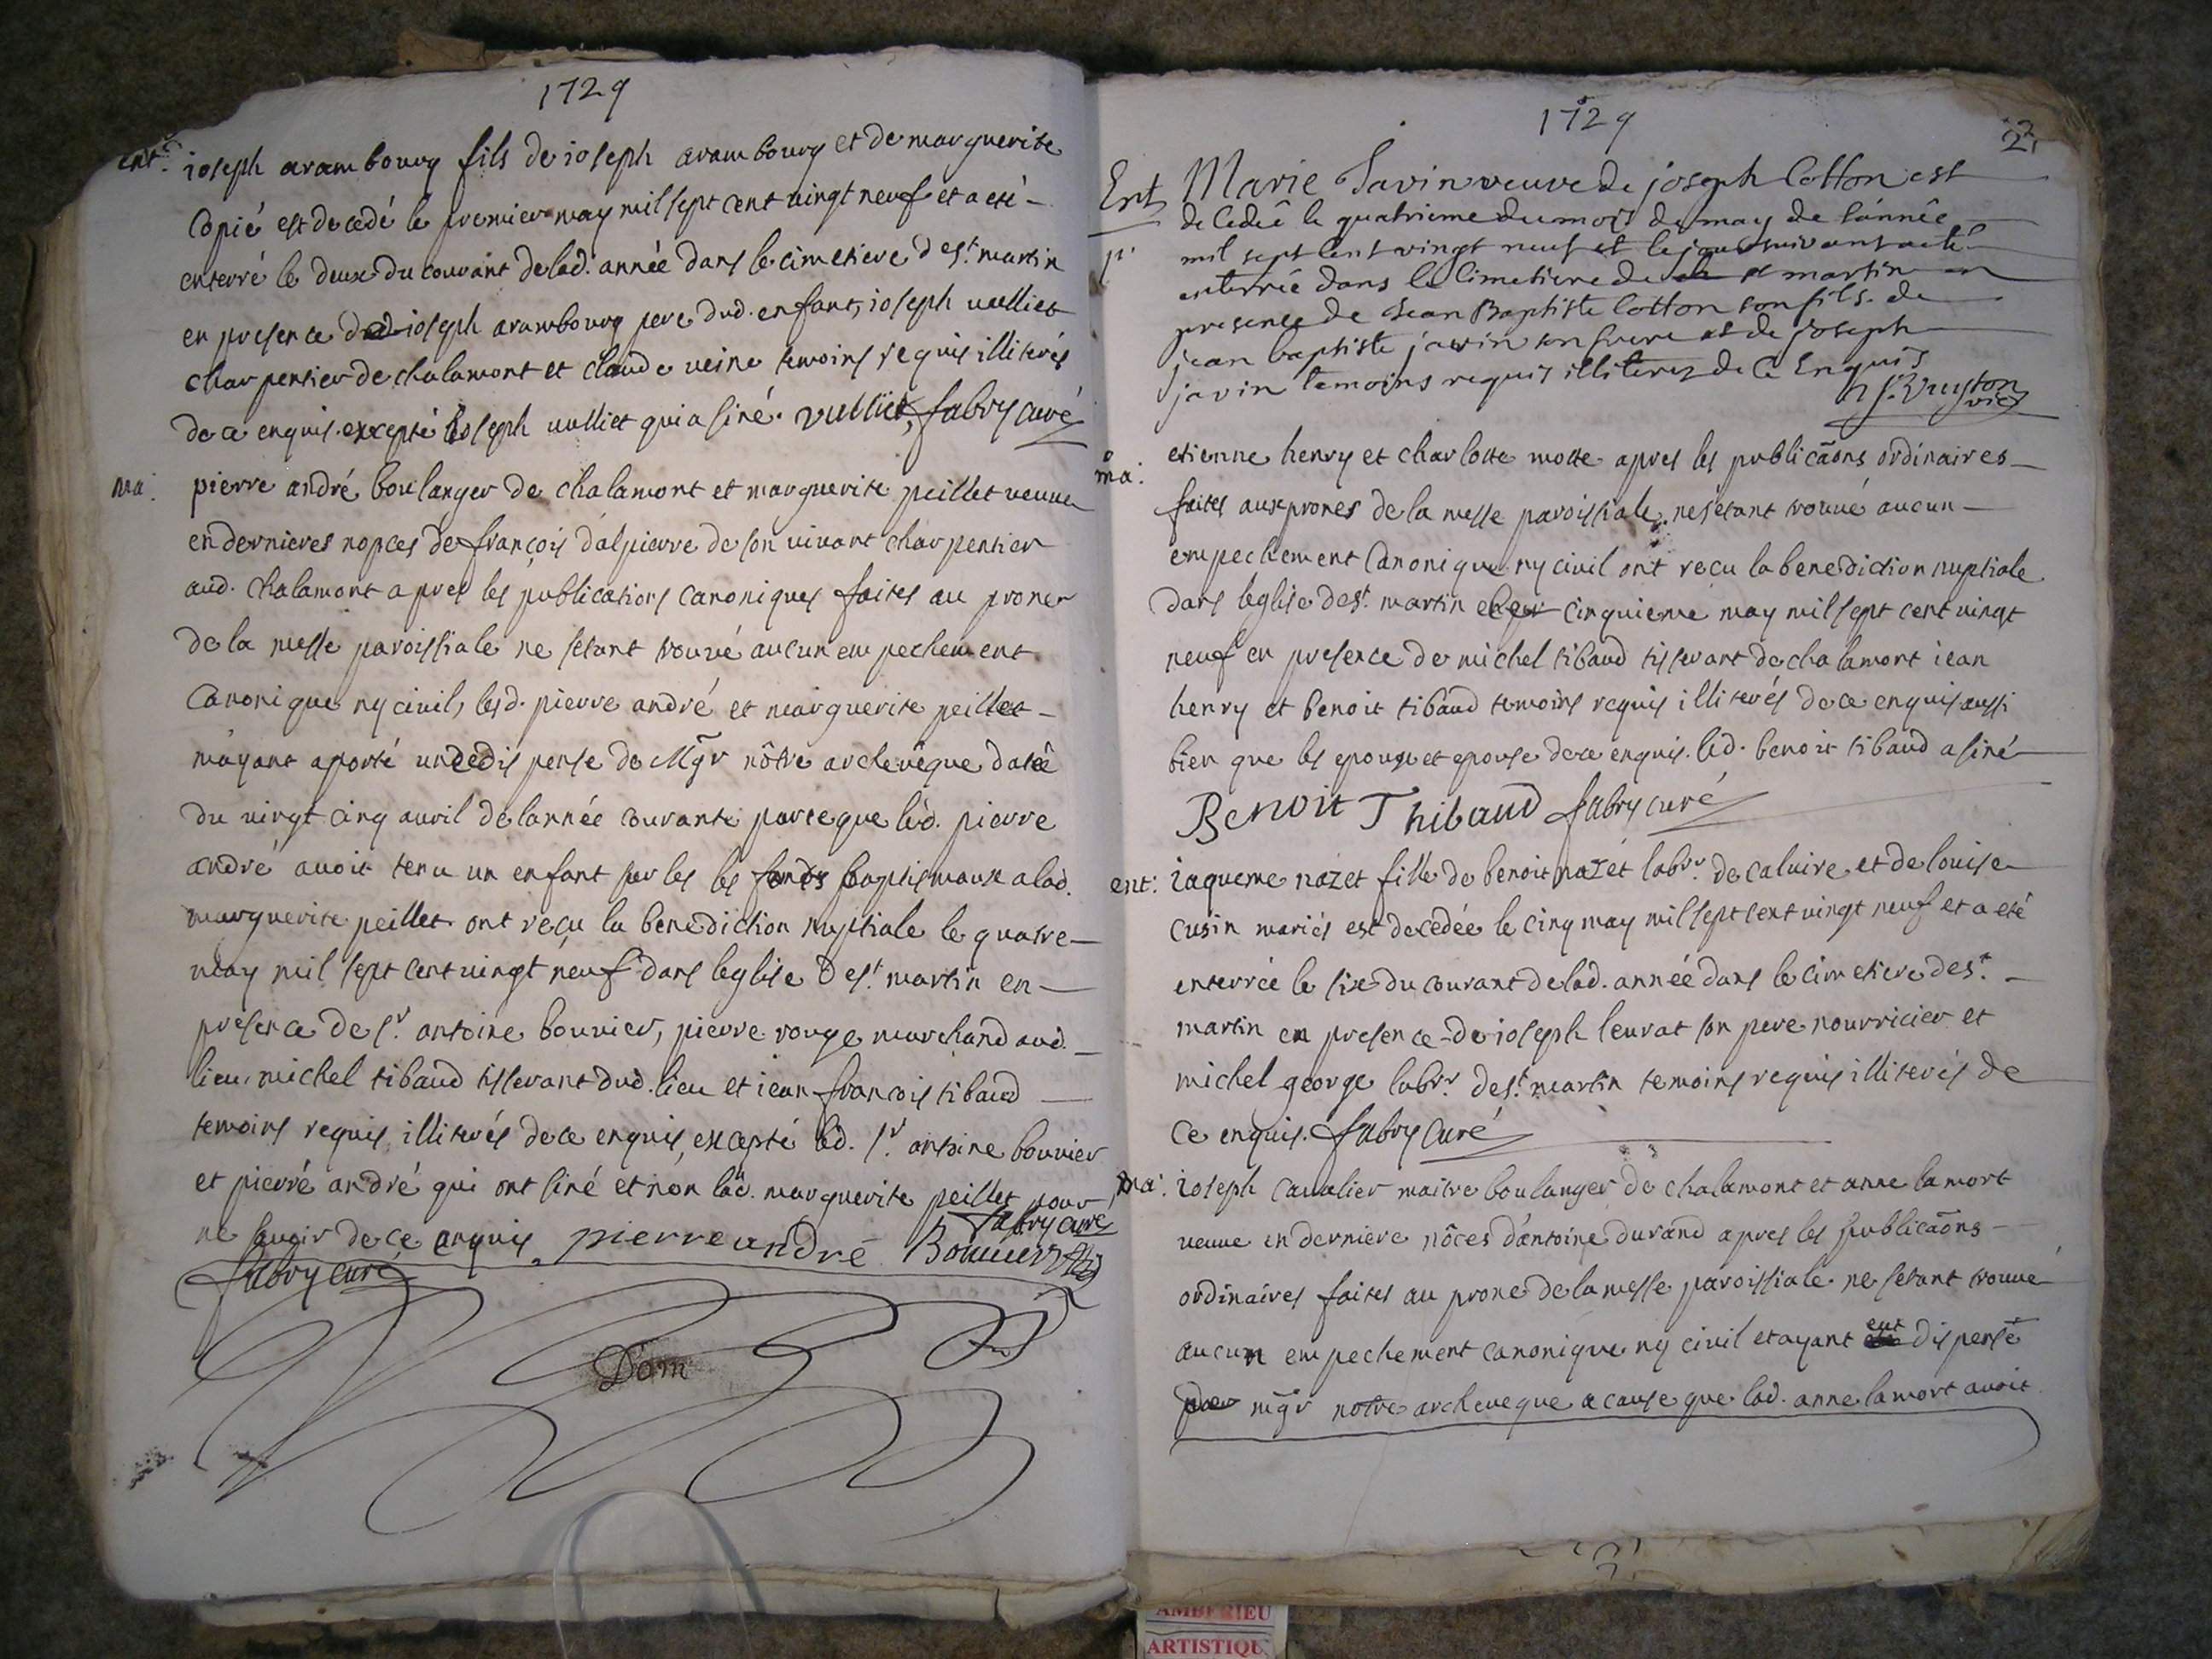 1729
ent.
ioseph arambourg fils de ioseph arambourg et de marguerite
Copié est decedé le premier may mil sept cent vingt neuf et a eté
enterré le deux du courant de lad. année dans le cimetiere de st. martin
en presence de ioseph arambourg pere dud. enfant, ioseph vulliet
charpentier de chalamont et claude veine temoins requis illiterés
de ce enquis. excepté ioseph vulliet qui a siné. vulliet, fabry curé
ma.
pierre andré boulanger de chalamont et marguerite peillet veuve
en dernieres nopces de françois dalpierre de son vivant charpentier
aud. chalamont apres les publications canoniques faites au prone
de la messe paroissiale ne setant trouvé aucun empechement
Canonique ny civil, lesd. pierre andré et marguerite peillet
mayant aporté une dispense de Mgr nôtre archevêque datée
du vingt cinq avril de lannée courante parce que led. pierre
andré avoit tenu un enfant sur les les fonds baptismaux a lad.
marguerite peillet ont reçu la benediction nuptiale le quatre
may mil sept cent vingt neuf dans leglise de st. martin en
presence de sr. antoine bouvier, pierre rouge marchand aud.
lieu, michel tibaud tisserant dud. lieu et iean francois tibaud
temoins requis, illiterés de ce enquis, excepté led. sr. antoine bouvier
et pierré andré qui ont siné et non lad. marguerite peillet pour
ne savoir de ce enquis. pierre andré Bouvier fabry curé
fabry curé
Dom
1729
22
Ent
Marie Javin veuve de joseph Cotton est
decedeê le quatrieme du mois de may de l'anneê
mil sept cent vingt neuf et le jour suivant a eté
enterreé dans le Cimetiere de st martin en
presence de Jean Baptiste Cotton son fils. de
jean baptiste javin son frere et de joseph
javin temoins requis illiterez de ce Enquis
vic
ma.
etienne henry et charlotte motte apres les publicãons ordinaires
faites aux prones de la messe paroissiale. ne setant trouvé aucun
empechement Canonique ny civil ont reçu la benediction nuptiale
dans leglise de st. martin le cinquieme may mil sept cent vingt
neuf en presence de michel tibaud tisserant de chalamont iean
henry et benoit tibaud temoins requis illiterés de ce enquis aussi
bien que les epoux et epouse de ce enquis. led. benoit tibaud a siné
Benoit Thibaud fabry curé
ent:
iaqueme nazet fille de benoit nazet labr. de caluire et de louise
cusin mariés est decedée le cinq may mil sept cent vingt neuf et a eté
enterrée le six du courant de lad. année dans le cimetiere de st.
martin en presence de ioseph leurat son pere nourricier et
michel george labr. de st. martin temoins requis illiterés de
ce enquis. fabry curé
ma.
ioseph cavalier maitre boulanger de chalamont et anne lamort
veuve en derniere nôces dantoine durand apres les publicãons
ordinaires faites au prone de la messe paroissiale ne setant trouvé
aucun empechement canonique ny civil et ayant eut dispense
de mgr notre archeveque a cause que lad. anne lamort avoit
AMBERIEU
ARTISTIQU